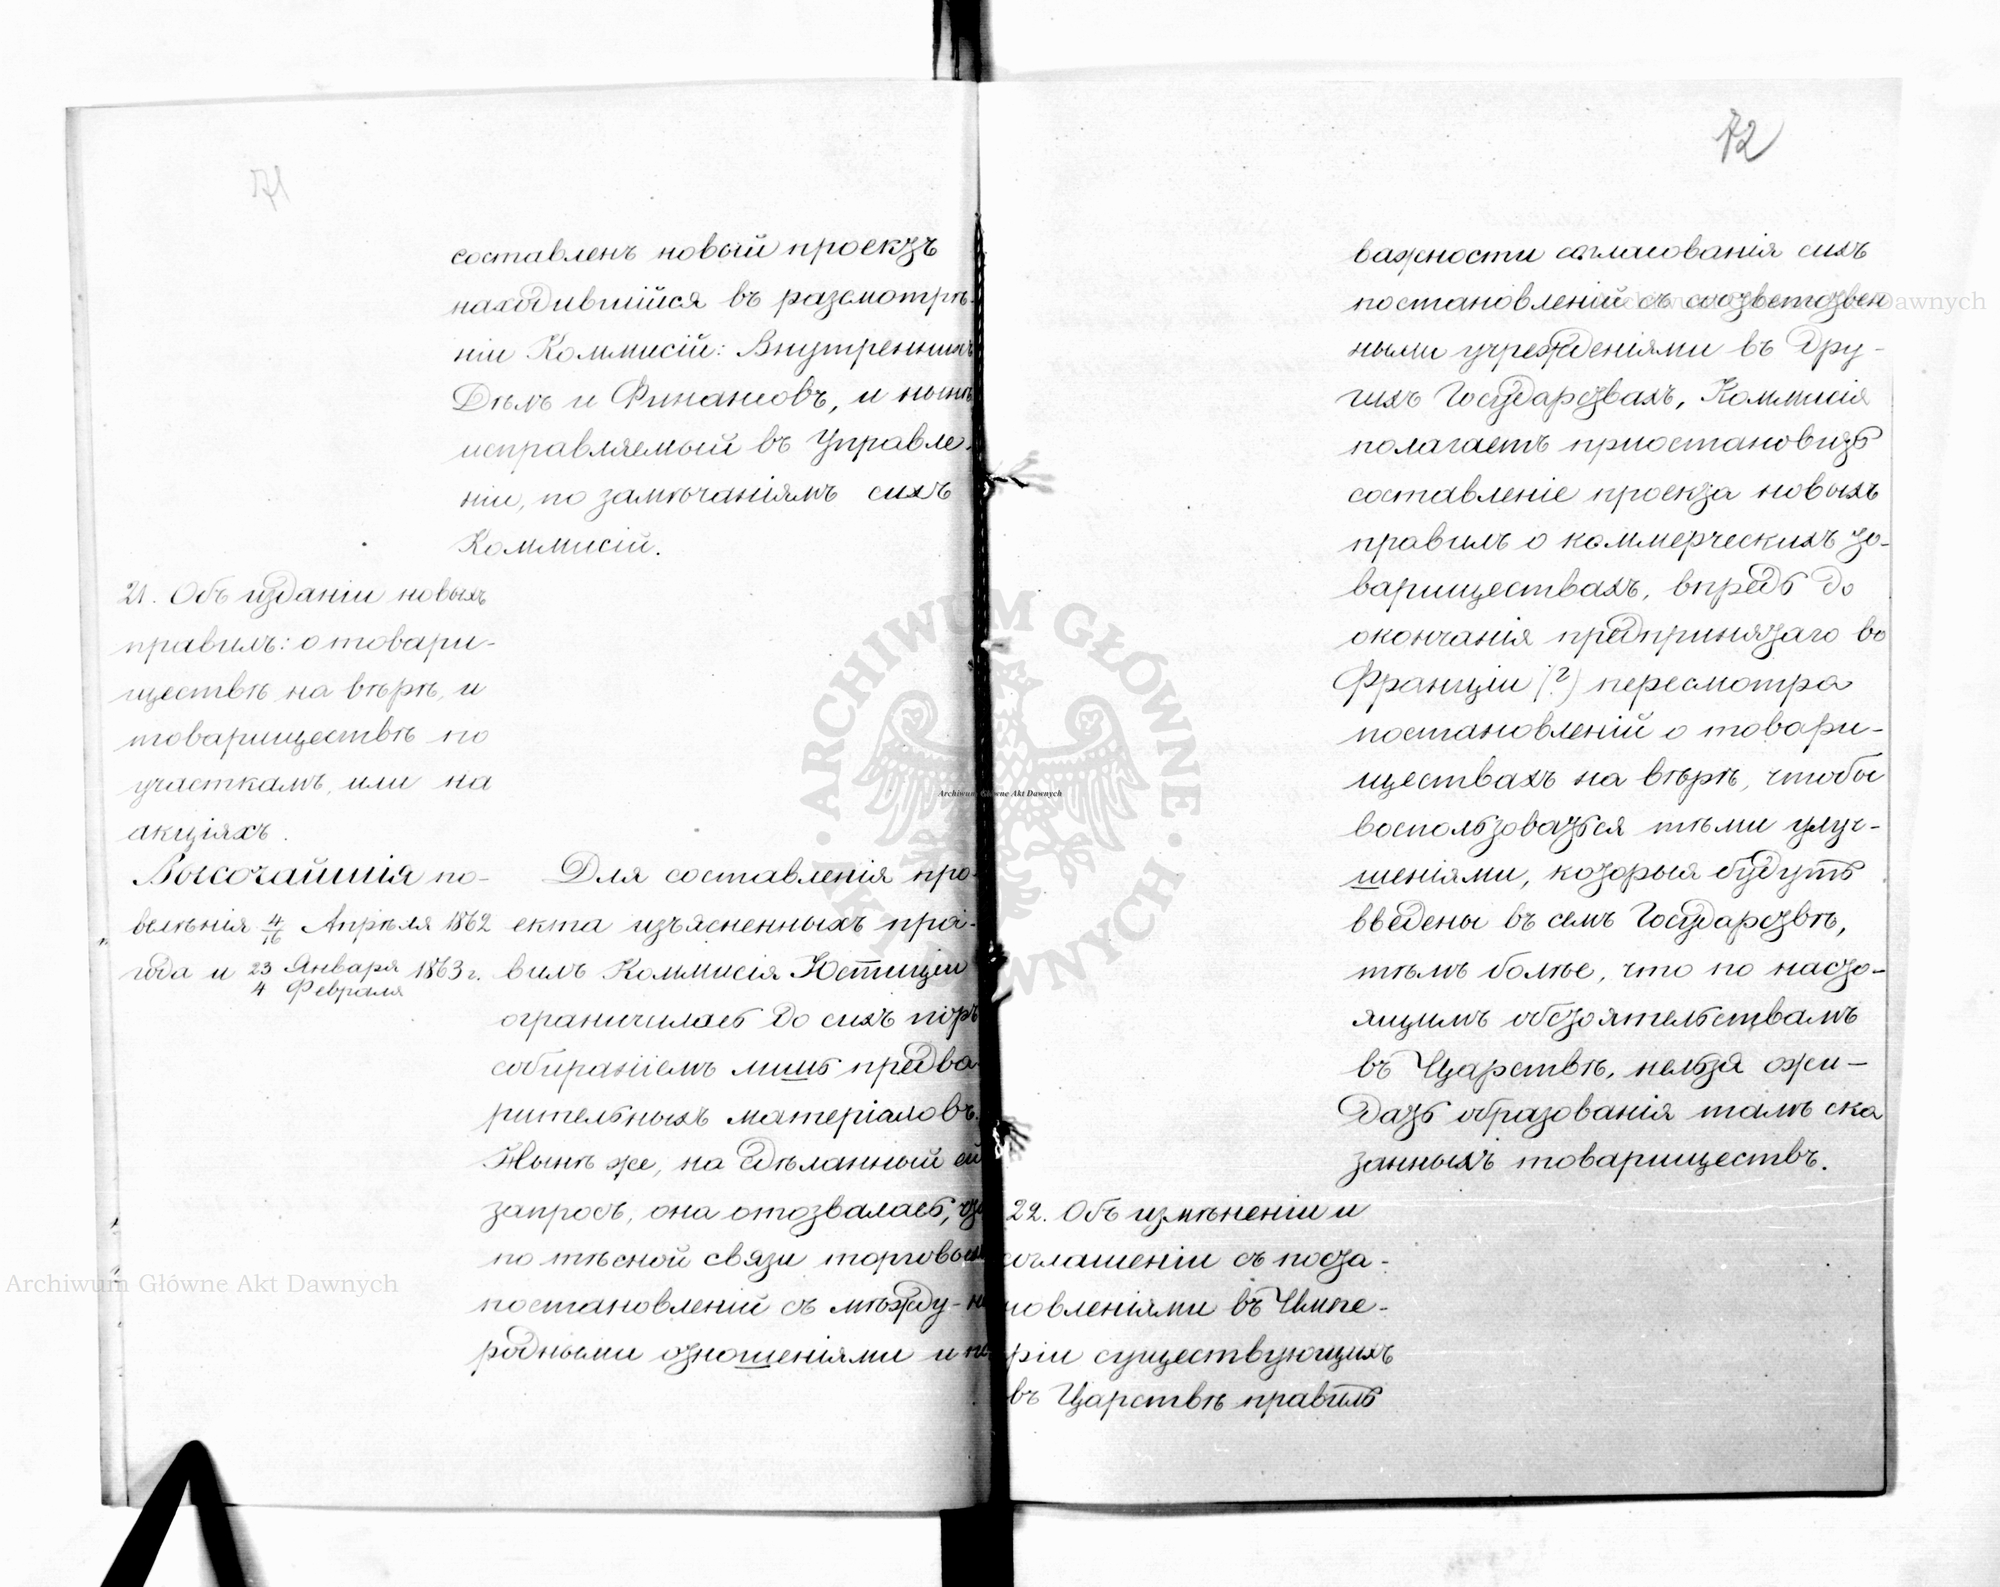 71
составленъ новый проектъ
находившійся въ разсмотрѣ-
ніи Коммисій: Внутреннихъ
Дѣлъ и Финансовъ, и нынѣ
исправляемый въ Управле-
ніи, по замѣчаніямъ сихъ
Коммисій.
21. Объ изданіи новыхъ
правилъ: о товари-
ществѣ на вѣрѣ, и
товариществѣ по
участкамъ, или на
акціяхъ.
Высочайшія по-
велѣнія 4/16 Апрѣля 1862
года и 23 Января / 4 Февраля 1863 г.
Для составленія про-
екта изъясненныхъ пра-
вилъ Коммисія Юстиціи
ограничилась до сихъ поръ
собираніемъ лишь предва-
рительныхъ матеріаловъ.
Нынѣ же, на сдѣланный ей
запросъ, она отозвалась, что
по тѣсной связи торговыхъ
постановленій съ между-на
родными отношеніями и по
72
важности согласованія сихъ
постановленій съ соотвѣтствен
ными учрежденіями въ дру-
гихъ Государствахъ, Коммисія
полагаетъ пріостановить
составленіе проекта новыхъ
правилъ о коммерческихъ то-
вариществахъ, впредь до
окончанія предпринятаго во
Франціи (?) пересмотра
постановленій о товари-
ществахъ на вѣрѣ, чтобы
воспользоваться тѣми улуч-
шеніями, которыя будутъ
введены въ семъ Государствѣ,
тѣмъ болѣе, что по насто-
ящимъ обстоятельствамъ
въ Царствѣ, нельзя ожи-
дать образованія тамъ ска
занныхъ товариществъ.
22. Объ измѣненіи и
соглашеніи съ поста-
новленіями въ Импе-
ріи существующихъ
въ Царствѣ правилъ
Archiwum Główne Akt Dawnych
Archiwum Główne Akt Dawnych
Archiwum Główne Akt Dawnych
ARCHIWUM GŁÓWNE AKT DAWNYCH